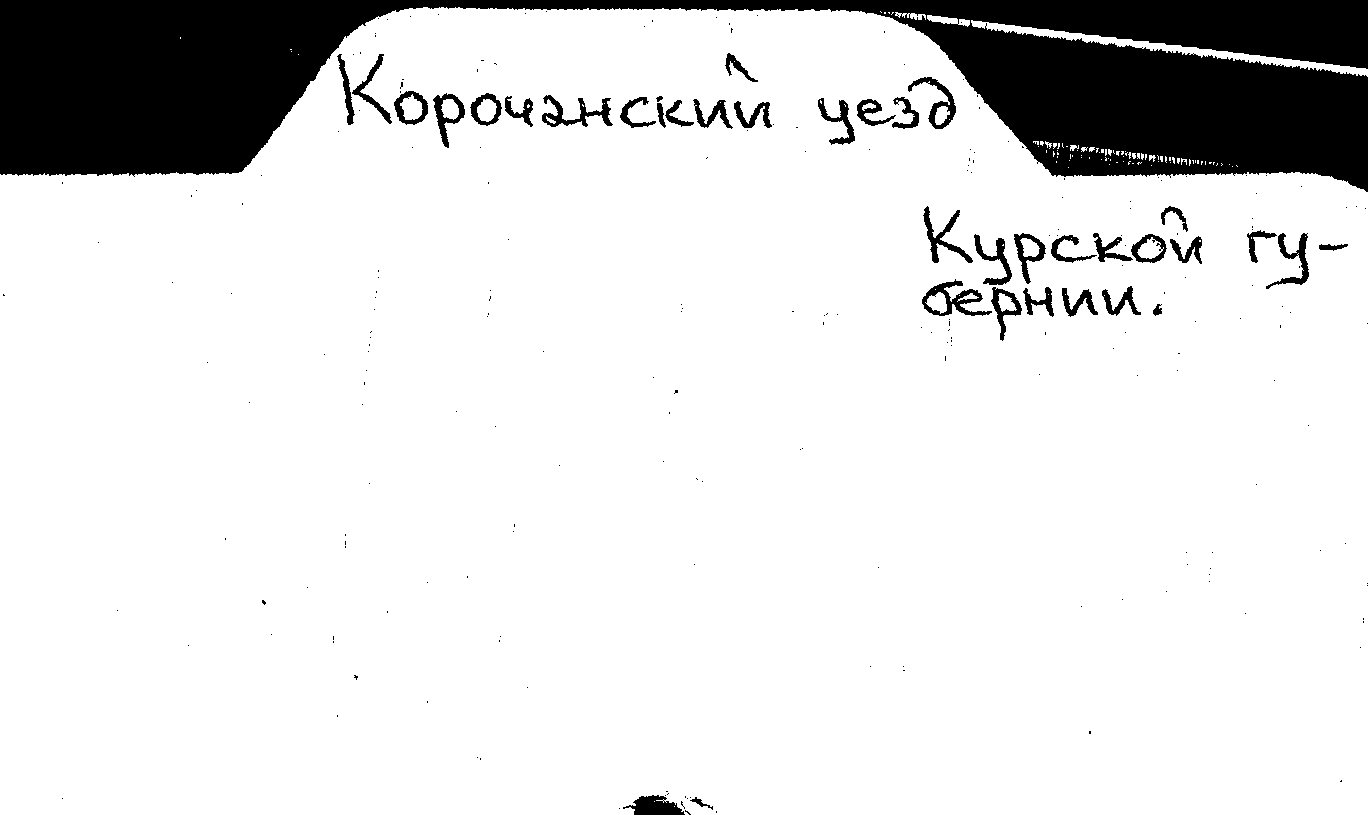 Корочанский уезд
Курской гу-
бернии.